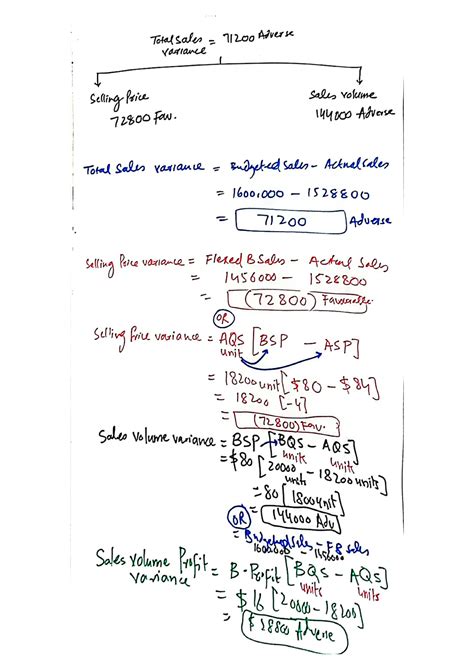 Total sales variance = 71200 Adverse
Selling Price
72800 Fav.
Sales volume
144000 Adverse
Total Sales variance = Budgeted Sales - Actual Sales
= 1600,000 - 1528800
= 71200 Adverse
Selling Price variance = Flexed B Sales - Actual Sales
= 1456000 - 1528800
= (72800) Favourable
OR
Selling Price variance = AQS [BSP - ASP]
unit
= 18200 unit [$80 - $84]
= 18200 [-4]
= (72800) Fav.
Sales volume variance = BSP [BQS - AQS]
units units
= $80 [20000 - 18200 units]
units
= 80 [1800 unit]
= 144000 Adv
OR
= Budgeted Sales - FB Sales
1600.000 - 1456000
Sales volume Profit variance = B. Profit [BQS - AQS]
units units
= $16 [20000 - 18200]
= $28800 Adverse